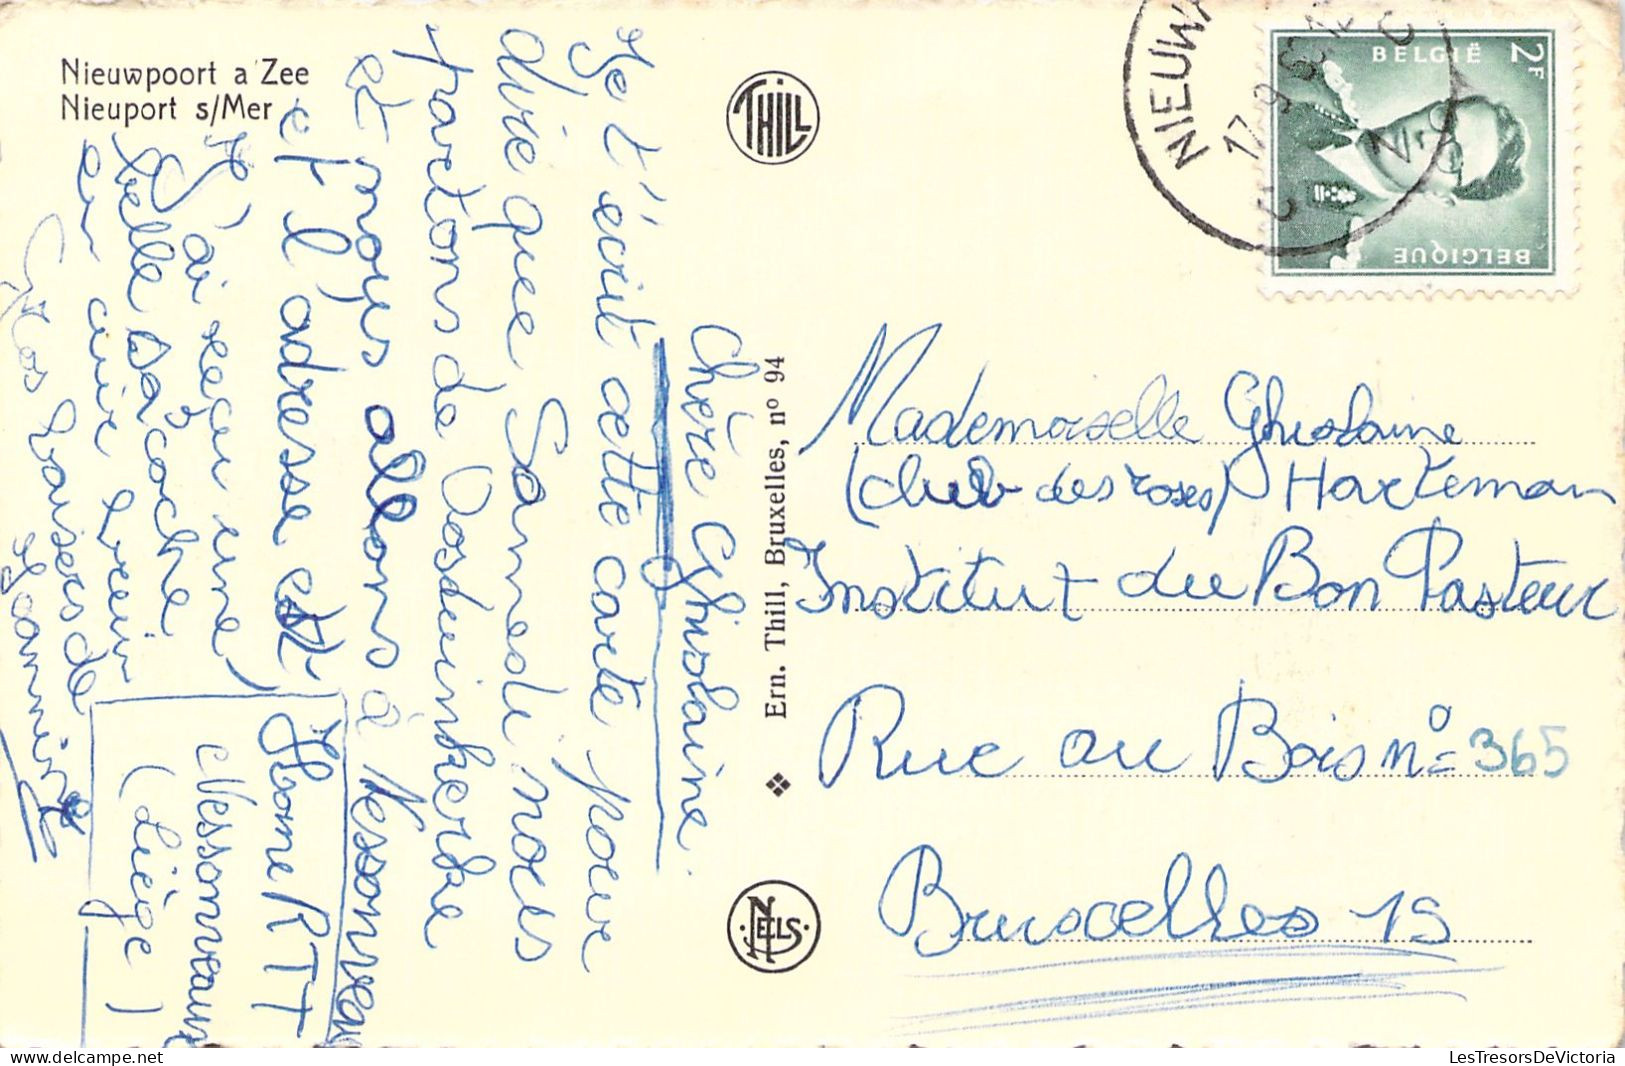 Nieuwpoort a/Zee
Nieuport s/Mer
THILL
Ern. Thill, Bruxelles, nº 94
NELS
BELGIË
2F
BELGIQUE
NIEUW
17 9
Chère Ghislaine
Je t'écrit cette carte pour
dire que Samedi nous
partons de Oosduinkerke
et nous allons à Nessonvaux
et l'adresse est
Home RTT
Nessonvaux
(Liège)
J'ai reçu une
belle sacoche
en cuir brun
Gros baisers de
Jeannine
Mademoiselle Ghislaine
(club des roses) Harteman
Institut du Bon Pasteur
Rue au Bois nº= 365
Bruxcelles 15
LesTresorsDeVictoria